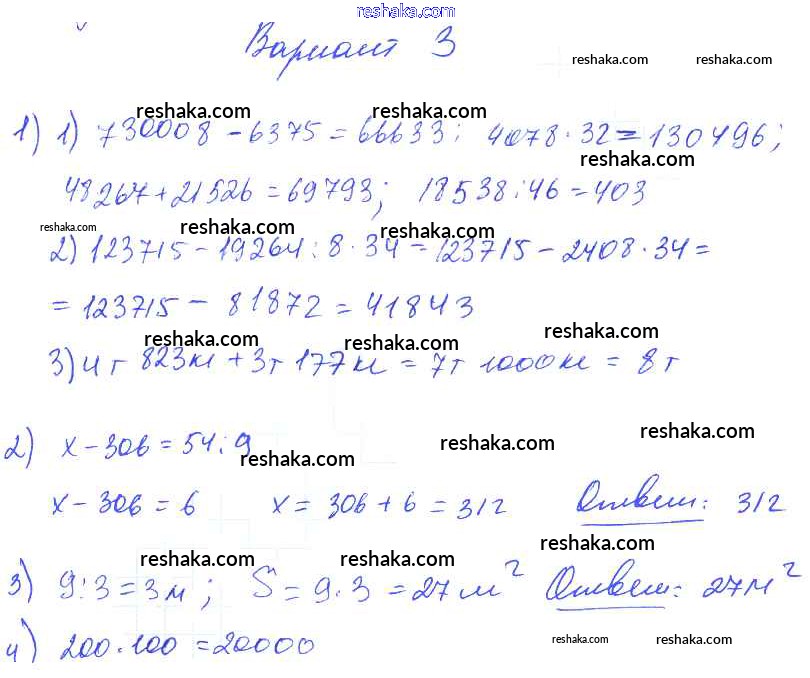 reshaka.com
Вариант 3
reshaka.com reshaka.com
reshaka.com reshaka.com
1) 1) 730008 - 6375 = 66633; 4078 · 32 = 130496;
reshaka.com
48267 + 21526 = 69793; 18538 : 46 = 403
reshaka.com reshaka.com reshaka.com
2) 123715 - 19264 : 8 · 34 = 123715 - 2408 · 34 =
= 123715 - 81872 = 41843
reshaka.com reshaka.com reshaka.com
3) 4т 823кг + 3т 177кг = 7т 1000кг = 8т
2) x - 306 = 54 : 9
reshaka.com reshaka.com reshaka.com
x - 306 = 6 x = 306 + 6 = 312 Ответ: 312
reshaka.com reshaka.com reshaka.com
3) 9 : 3 = 3м; S = 9 · 3 = 27м² Ответ: 27м²
4) 200 · 100 = 20000
reshaka.com reshaka.com